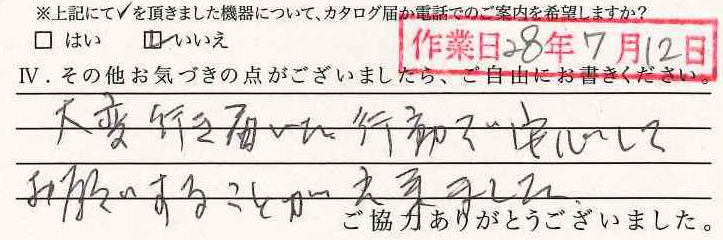 ※上記にて✓を頂きました機器について、カタログ届か電話でのご案内を希望しますか?
□ はい　☑ いいえ
作業日28年7月12日
Ⅳ．その他お気づきの点がございましたら、ご自由にお書きください。
大変行き届いた行動で安心して
お願いすることが出来ました。
ご協力ありがとうございました。